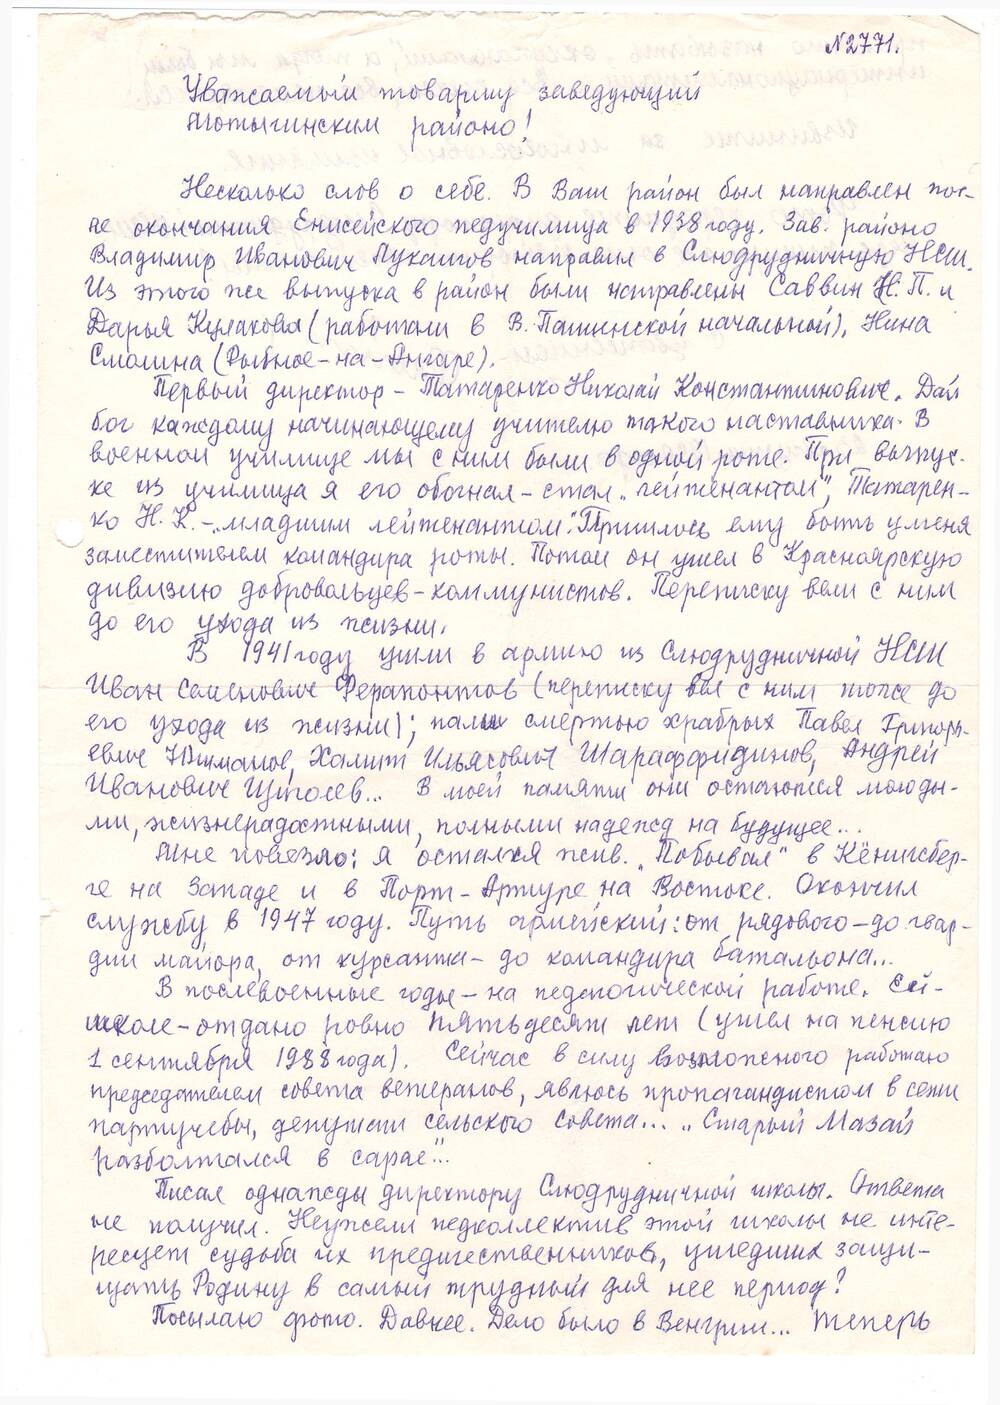 №2771.
Уважаемый товарищ заведующий
Мотыгинским районо!
Несколько слов о себе. В Ваш район был направлен пос-
ле окончания Енисейского педучилища в 1938 году. Зав. районо
Владимир Иванович направил в Слюдрудничную НСШ.
Из этого же выпуска в район были направлены Саввин Н. П. и
Дарья Кулакова (работали в В. Пашинской начальной), Нина
Смолина (Рыбное-на-Ангаре).
Первый директор – Татаренко Николай Константинович. Дай
бог каждому начинающему учителю такого наставника. В
военном училище мы с ним были в одной роте. При выпус-
ке из училища я его обогнал – стал „лейтенантом", Татарен-
ко Н. К. – „младшим лейтенантом". Пришлось ему быть у меня
заместителем командира роты. Потом он ушел в Красноярскую
дивизию добровольцев-коммунистов. Переписку вели с ним
до его ухода из жизни.
В 1941 году ушли в армию из Слюдрудничной НСШ
Иван Семенович Ферапонтов (переписку вел с ним тоже до
его ухода из жизни); пали смертью храбрых Павел Григорь-
евич Хамит Ильясович Шараффидинов, Андрей
Иванович ... В моей памяти они остаются молоды-
ми, жизнерадостными, полными надежд на будущее...
Мне повезло: я остался жив. „Побывал" в Кёнигсбер-
ге на Западе и в Порт-Артуре на Востоке. Окончил
службу в 1947 году. Путь армейский: от рядового – до гвар-
дии майора, от курсанта – до командира батальона...
В послевоенные годы – на педагогической работе. Ей –
школе – отдано ровно пятьдесят лет (ушел на пенсию
1 сентября 1988 года). Сейчас в силу возможного работаю
председателем совета ветеранов, являюсь пропагандистом в сети
партучебы, депутат сельского Совета... „Старый Мазай
разболтался в сарае"...
Писал однажды директору Слюдрудничной школы. Ответа
не получил. Неужели педколлектив этой школы не инте-
ресует судьба их предшественников, ушедших защи-
щать Родину в самый трудный для нее период?
Посылаю фото. Давнее. Дело было в Венгрии... Теперь